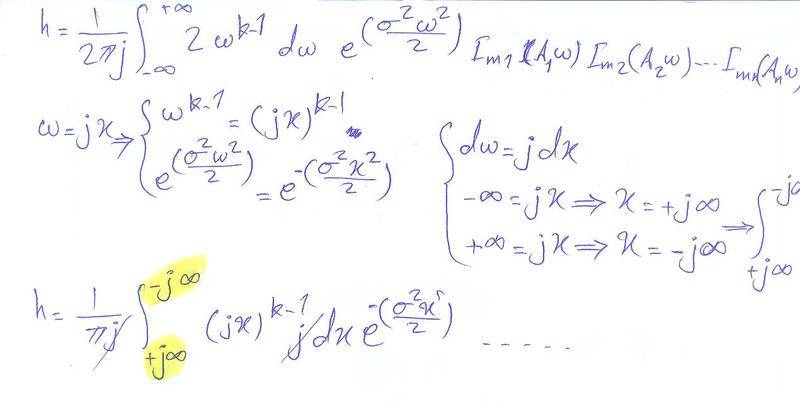 h = 1/2πj ∫_{-∞}^{+∞} 2 ω^{k-1} dω e^{(σ²ω²/2)} I_{m1}(A₁ω) I_{m2}(A₂ω) --- I_{mn}(Aₙω
ω = jx ⇒ { ω^{k-1} = (jx)^{k-1}
e^{(σ²ω²/2)} = e^{-(σ²x²/2)}
{ dω = j dx
-∞ = jx ⇒ x = +j∞
+∞ = jx ⇒ x = -j∞ ⇒ ∫_{+j∞}^{-j∞
h = 1/πj ∫_{+j∞}^{-j∞} (jx)^{k-1} j dx e^{-(σ²x²/2)} -----